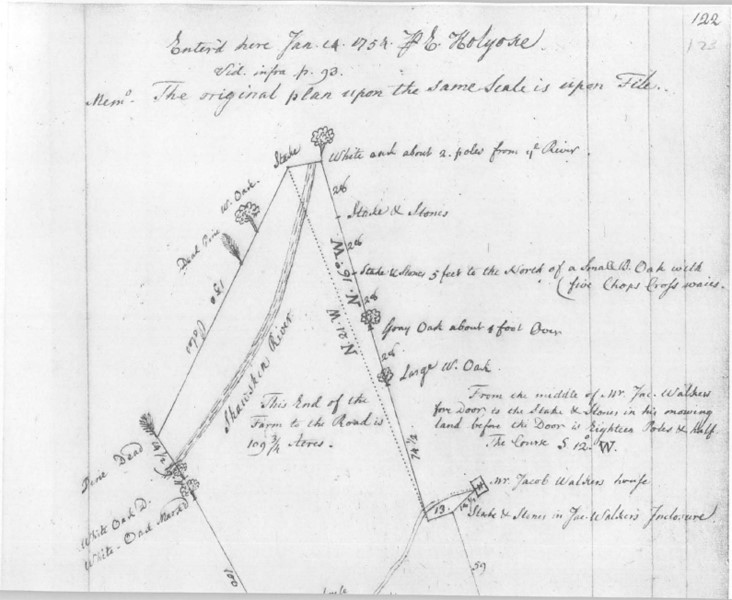 122
123
Enter'd here Jan. 14. 175 ⅌ E. Holyoke.
Vid. infra p. 93.
Memo. The original plan upon the same Scale is upon File.
Stake
White and about 2. poles from ye River.
W. Oak.
Dead Pine
26
Stake & Stones
26
Stake & Stones 5 feet to the North of a Small B. Oak with
five Chops Cross waies.
N. 16° W
N 21 W
28
130 Poles
Gray Oak about 1 foot Over
26
Large W. Oak.
Shawshin River
This End of the
Farm to the Road is
109 3/4 Acres.
From the middle of Mr. Jac. Walkers
fore Door, to the Stake & Stones in his mowing
land before the Door is Eighteen Poles & half
The Course S 12° W.
14 1/2
Pine Dead
74 1/2
Mr. Jacob Walkers house
13.
Stake & Stones in Jac. Walkers Inclosure.
White Oak D.
White-Oak Marked
100
59